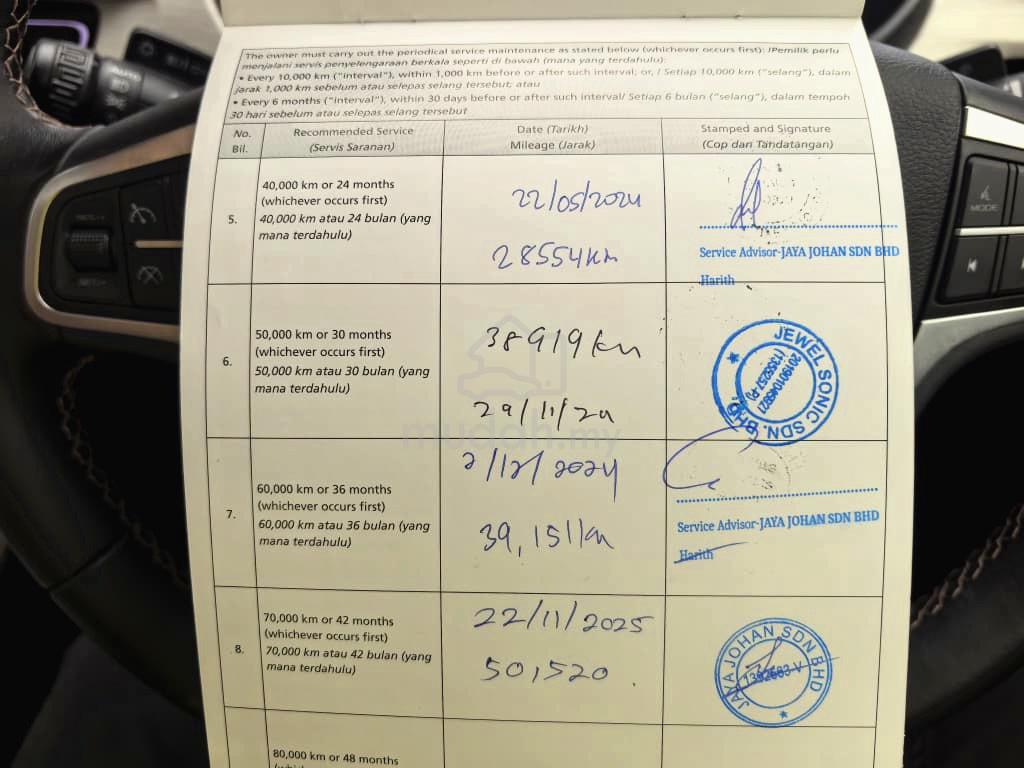 The owner must carry out the periodical service maintenance as stated below (whichever occurs first): /Pemilik perlu
menjalani servis penyelengaraan berkala seperti di bawah (mana yang terdahulu):
• Every 10,000 km ("interval"), within 1,000 km before or after such interval; or, / Setiap 10,000 km ("selang"), dalam
jarak 1,000 km sebelum atau selepas selang tersebut; atau
• Every 6 months ("interval"), within 30 days before or after such interval/ Setiap 6 bulan ("selang"), dalam tempoh
30 hari sebelum atau selepas selang tersebut
No.
Bil.
Recommended Service
(Servis Saranan)
Date (Tarikh)
Mileage (Jarak)
Stamped and Signature
(Cop dan Tandatangan)
5.
40,000 km or 24 months
(whichever occurs first)
40,000 km atau 24 bulan (yang
mana terdahulu)
22/05/2024
28554km
Service Advisor-JAYA JOHAN SDN BHD
Harith
6.
50,000 km or 30 months
(whichever occurs first)
50,000 km atau 30 bulan (yang
mana terdahulu)
38919km
29/11/24
JEWEL SONIC SDN. BHD.
mudah.my
7.
60,000 km or 36 months
(whichever occurs first)
60,000 km atau 36 bulan (yang
mana terdahulu)
2/12/2024
39,151km
Service Advisor-JAYA JOHAN SDN BHD
Harith
8.
70,000 km or 42 months
(whichever occurs first)
70,000 km atau 42 bulan (yang
mana terdahulu)
22/11/2025
501520
JAYA JOHAN SDN BHD
80,000 km or 48 months
MODE